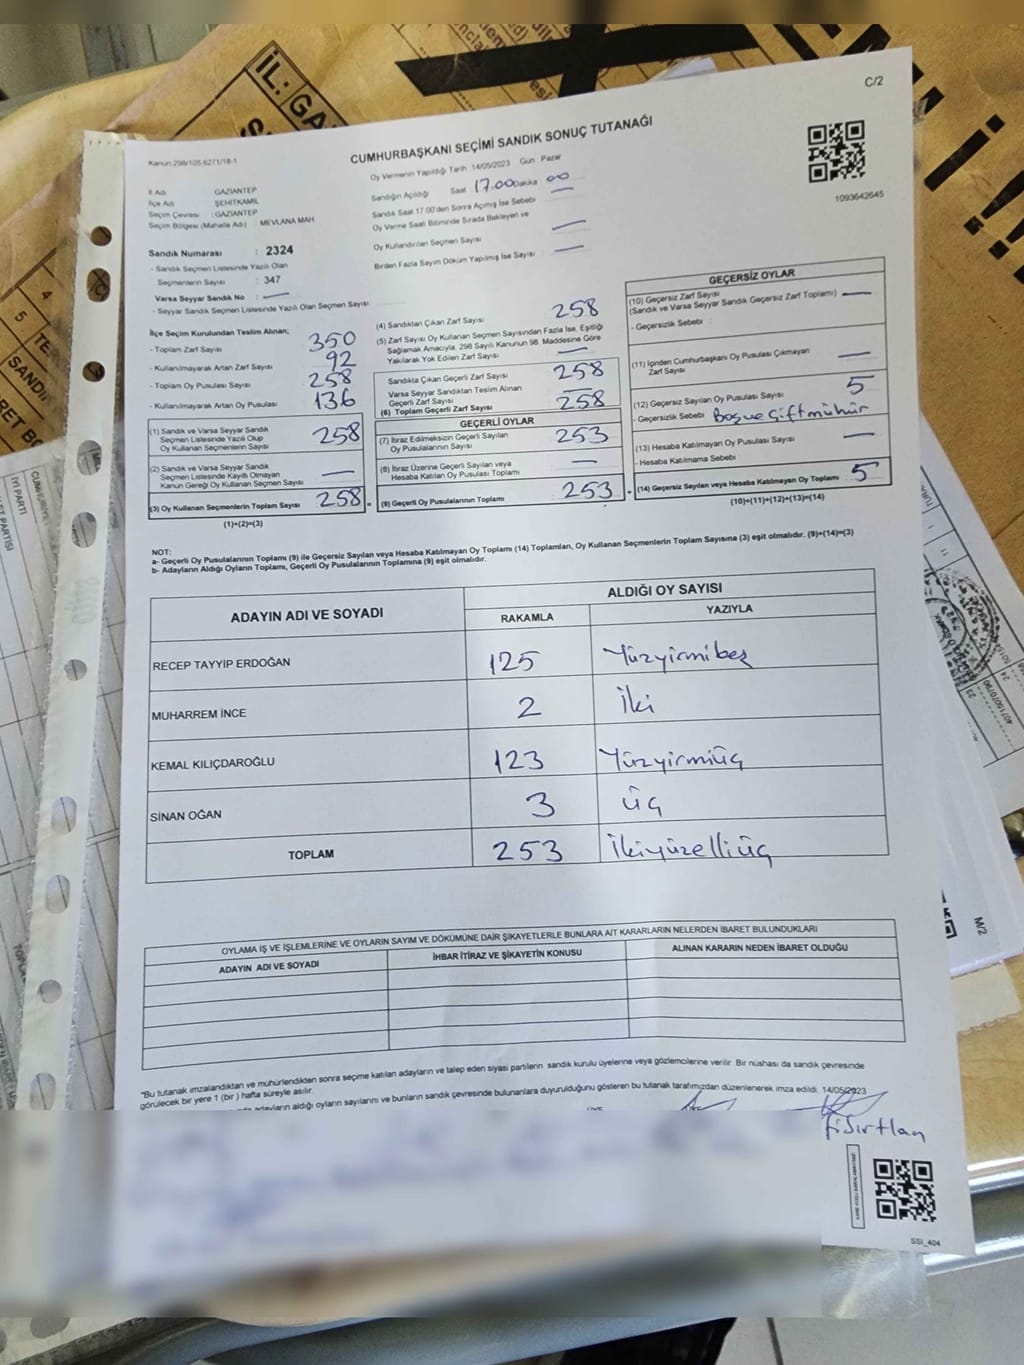 C/2
İL: GA
CUMHURBAŞKANI SEÇİMİ SANDIK SONUÇ TUTANAĞI
Kanun:298/105,6271/18-1
Oy Vermenin Yapıldığı Tarih 14/05/2023 Gün Pazar
Sandığın Açıldığı Saat 17.00 Dakika 00
Sandık Saat 17:00'den Sonra Açılmış İse Sebebi
Oy Verme Saati Bitiminde Sırada Bekleyen ve
Oy Kullandırılan Seçmen Sayısı —
Birden Fazla Sayım Döküm Yapılmış İse Sayısı —
1093642645
İl Adı : GAZİANTEP
İlçe Adı : ŞEHİTKAMİL
Seçim Çevresi : GAZİANTEP
Seçim Bölgesi (Mahalle Adı) : MEVLANA MAH.
Sandık Numarası : 2324
- Sandık Seçmen Listesinde Yazılı Olan
Seçmenlerin Sayısı : 347
Varsa Seyyar Sandık No : —
- Seyyar Sandık Seçmen Listesinde Yazılı Olan Seçmen Sayısı
İlçe Seçim Kurulundan Teslim Alınan;
- Toplam Zarf Sayısı 350
- Kullanılmayarak Artan Zarf Sayısı 92
- Toplam Oy Pusulası Sayısı 258
- Kullanılmayarak Artan Oy Pusulası 136
(1) Sandık ve Varsa Seyyar Sandık
Seçmen Listesinde Yazılı Olup
Oy Kullanan Seçmenlerin Sayısı 258
(2) Sandık ve Varsa Seyyar Sandık
Seçmen Listesinde Kayıtlı Olmayan
Kanun Gereği Oy Kullanan Seçmen Sayısı —
(3) Oy Kullanan Seçmenlerin Toplam Sayısı 258 =
(1)+(2)=(3)
(4) Sandıktan Çıkan Zarf Sayısı 258
(5) Zarf Sayısı Oy Kullanan Seçmen Sayısından Fazla İse, Eşitliği
Sağlamak Amacıyla, 298 Sayılı Kanunun 98. Maddesine Göre
Yakılarak Yok Edilen Zarf Sayısı —
Sandıkta Çıkan Geçerli Zarf Sayısı 258
Varsa Seyyar Sandıktan Teslim Alınan
Geçerli Zarf Sayısı —
(6) Toplam Geçerli Zarf Sayısı 258
GEÇERLİ OYLAR
(7) İtiraz Edilmeksizin Geçerli Sayılan
Oy Pusulalarının Sayısı 253
(8) İtiraz Üzerine Geçerli Sayılan veya
Hesaba Katılan Oy Pusulası Toplamı —
(9) Geçerli Oy Pusulalarının Toplamı 253 +
GEÇERSİZ OYLAR
(10) Geçersiz Zarf Sayısı
(Sandık ve Varsa Seyyar Sandık Geçersiz Zarf Toplamı) —
- Geçersizlik Sebebi :
(11) İçinden Cumhurbaşkanı Oy Pusulası Çıkmayan
Zarf Sayısı —
(12) Geçersiz Sayılan Oy Pusulası Sayısı 5
- Geçersizlik Sebebi Boş ve Çift mühür
(13) Hesaba Katılmayan Oy Pusulası Sayısı —
- Hesaba Katılmama Sebebi
(14) Geçersiz Sayılan veya Hesaba Katılmayan Oy Toplamı 5
(10)+(11)+(12)+(13)=(14)
NOT:
a- Geçerli Oy Pusulalarının Toplamı (9) ile Geçersiz Sayılan veya Hesaba Katılmayan Oy Toplamı (14) Toplamları, Oy Kullanan Seçmenlerin Toplam Sayısına (3) eşit olmalıdır. (9)+(14)=(3)
b- Adayların Aldığı Oyların Toplamı, Geçerli Oy Pusulalarının Toplamına (9) eşit olmalıdır.
ADAYIN ADI VE SOYADI
ALDIĞI OY SAYISI
RAKAMLA YAZIYLA
RECEP TAYYİP ERDOĞAN 125 Yüzyirmibeş
MUHARREM İNCE 2 İki
KEMAL KILIÇDAROĞLU 123 Yüzyirmiüç
SİNAN OĞAN 3 üç
TOPLAM 253 İkiyüzelliüç
OYLAMA İŞ VE İŞLEMLERİNE VE OYLARIN SAYIM VE DÖKÜMÜNE DAİR ŞİKAYETLERLE BUNLARA AİT KARARLARIN NELERDEN İBARET BULUNDUKLARI
ADAYIN ADI VE SOYADI İHBAR İTİRAZ VE ŞİKAYETİN KONUSU ALINAN KARARIN NEDEN İBARET OLDUĞU
"Bu tutanak imzalandıktan ve mühürlendikten sonra seçime katılan adayların ve talep eden siyasi partilerin sandık kurulu üyelerine veya gözlemcilerine verilir. Bir nüshası da sandık çevresinde
görülecek bir yere 1 (bir) hafta süreyle asılır.
adayların aldığı oyların sayılarını ve bunların sandık çevresinde bulunanlara duyurulduğunu gösteren bu tutanak tarafımızdan düzenlenerek imza edildi. 14/05/2023
SSI_404
M/2